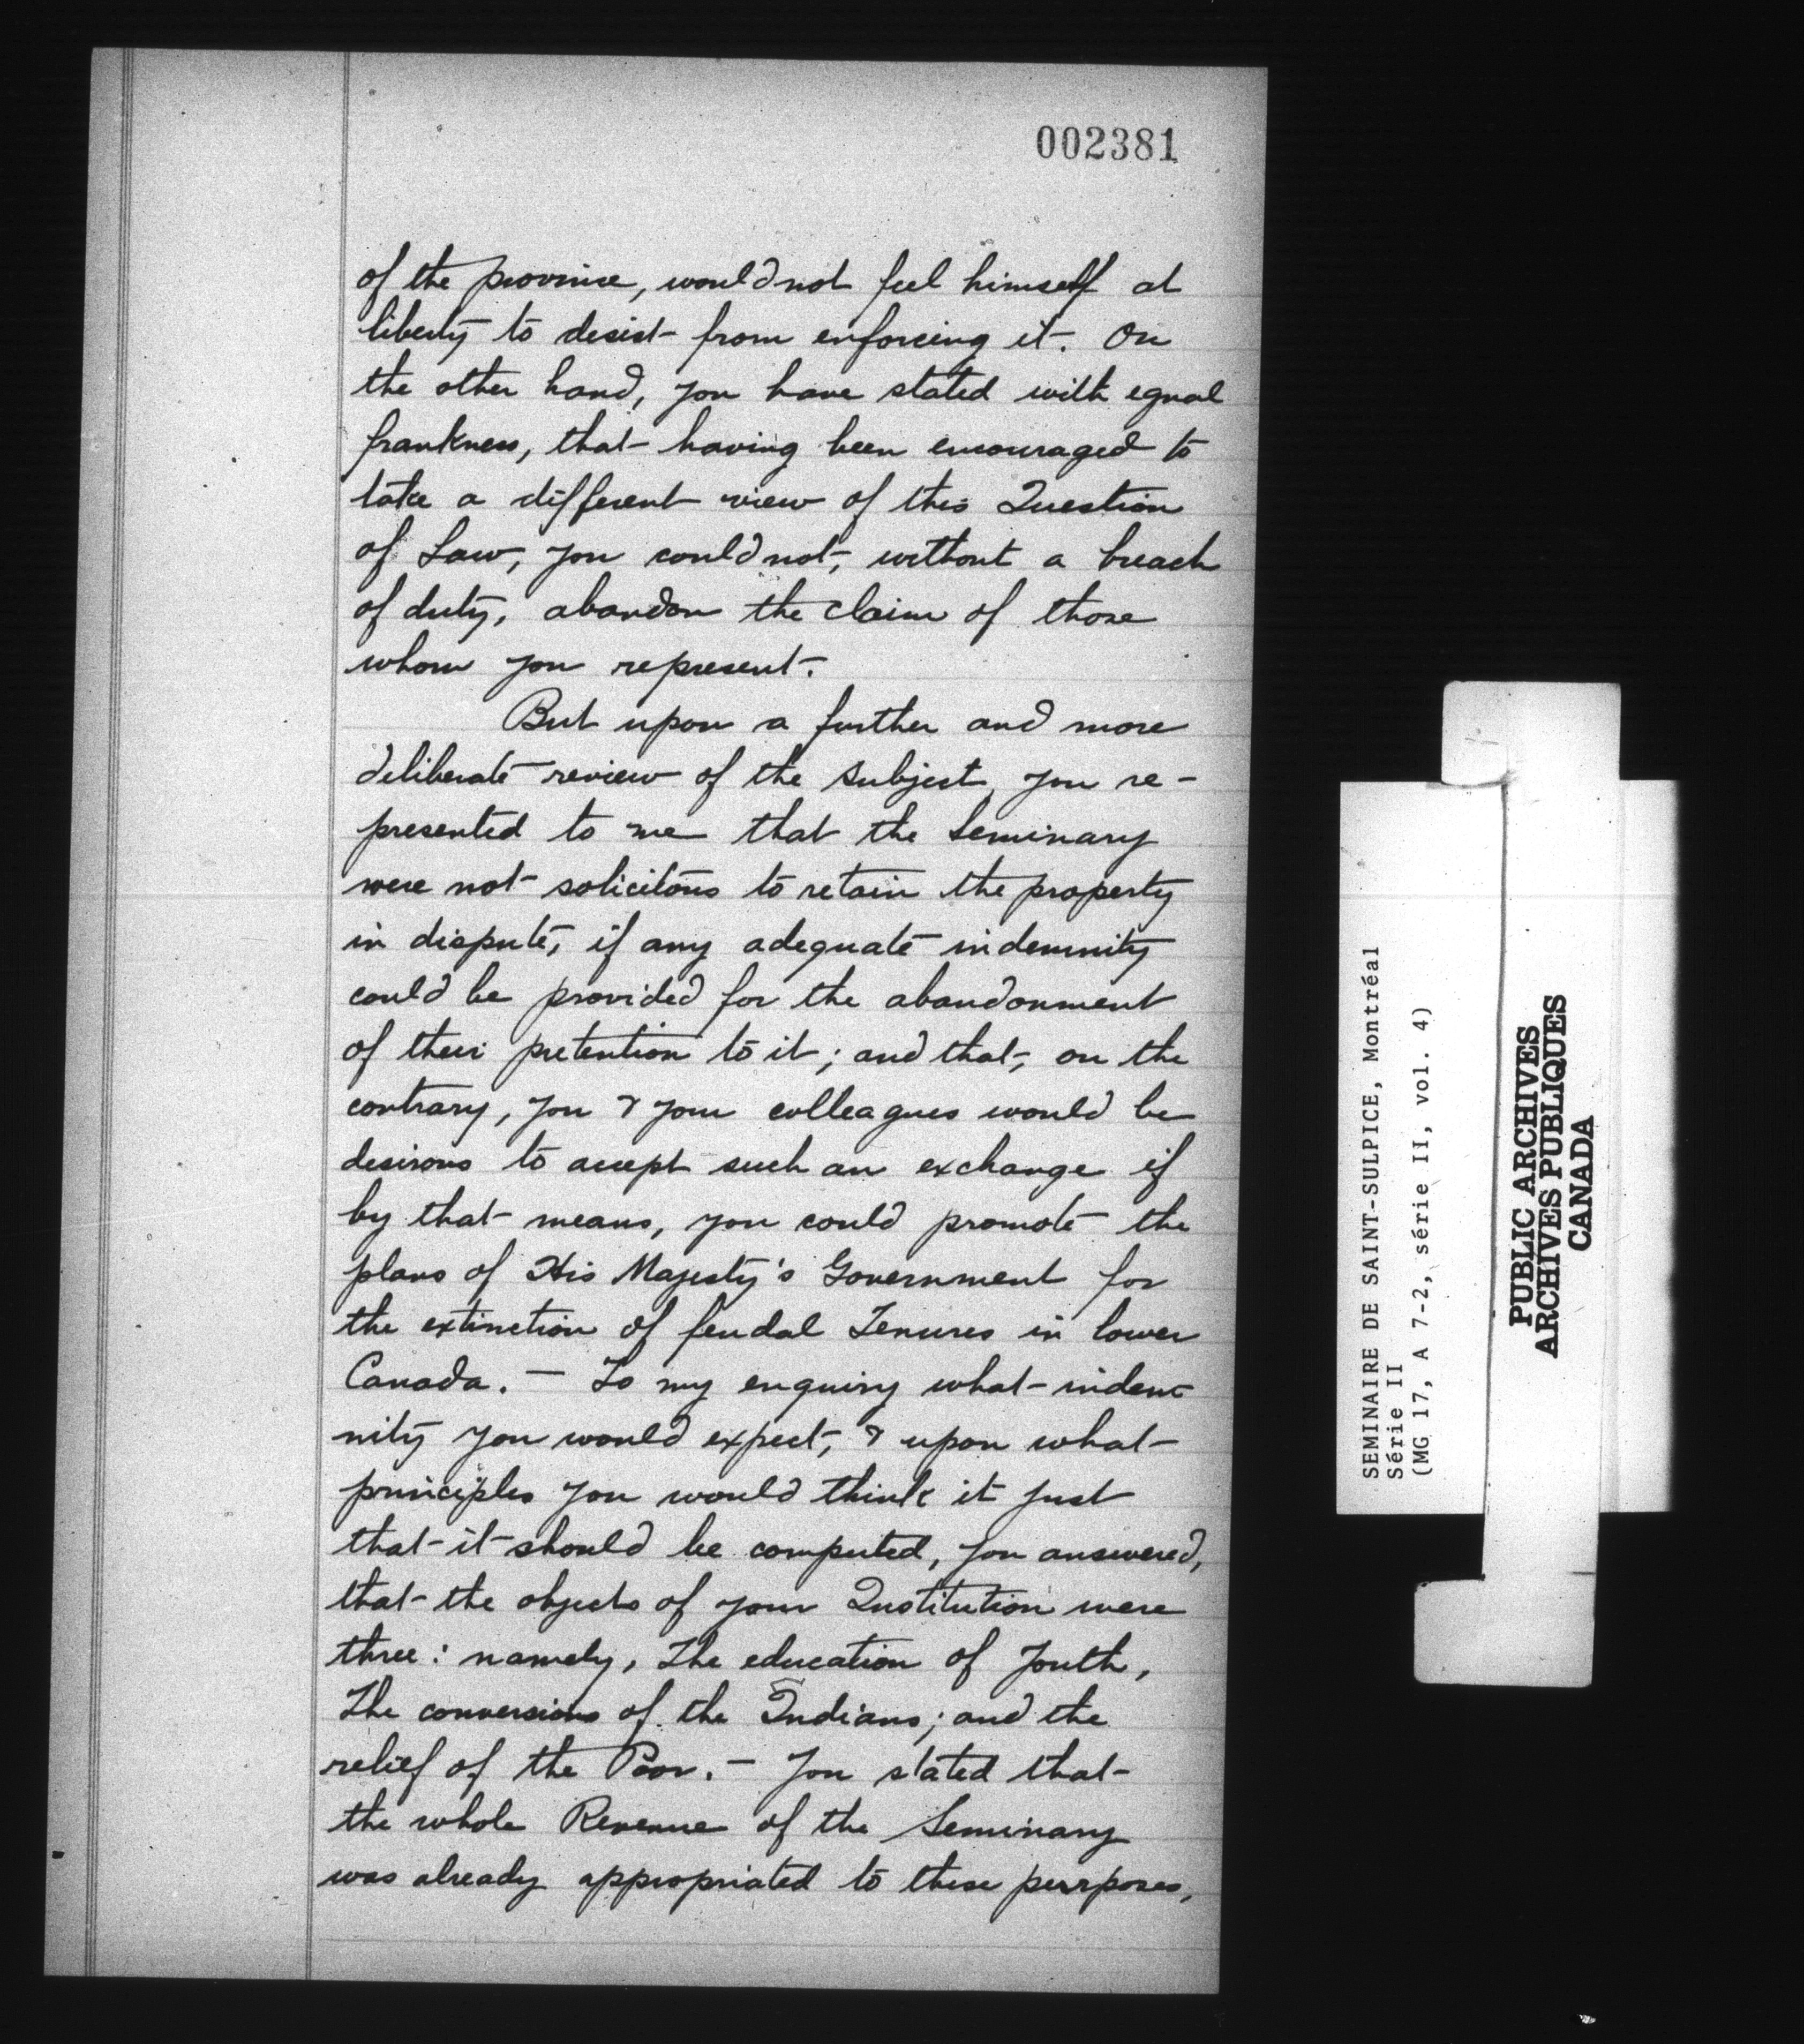 002381
of the province, would not feel himself at
liberty to desist from enforcing it. On
the other hand, you have stated with equal
frankness, that having been encouraged to
take a different view of this Question
of Law, you could not, without a breach
of duty, abandon the claim of those
whom you represent.
But upon a further and more
deliberate review of the subject, you re-
presented to me that the Seminary
were not solicitous to retain the property
in dispute, if any adequate indemnity
could be provided for the abandonment
of their pretention to it; and that, on the
contrary, you & your colleagues would be
desirous to accept such an exchange if
by that means, you could promote the
plans of His Majesty's Government for
the extinction of feudal Tenures in lower
Canada. — To my enquiry what indem-
nity you would expect, & upon what
principles you would think it just
that it should be computed, you answered,
that the objects of your Institution were
three: namely, The education of Youth,
The conversions of the Indians; and the
relief of the Poor. — You stated that
the whole Revenue of the Seminary
was already appropriated to these purposes,
SEMINAIRE DE SAINT-SULPICE, Montréal
Série II
(MG 17, A 7-2, série II, vol. 4)
PUBLIC ARCHIVES
ARCHIVES PUBLIQUES
CANADA